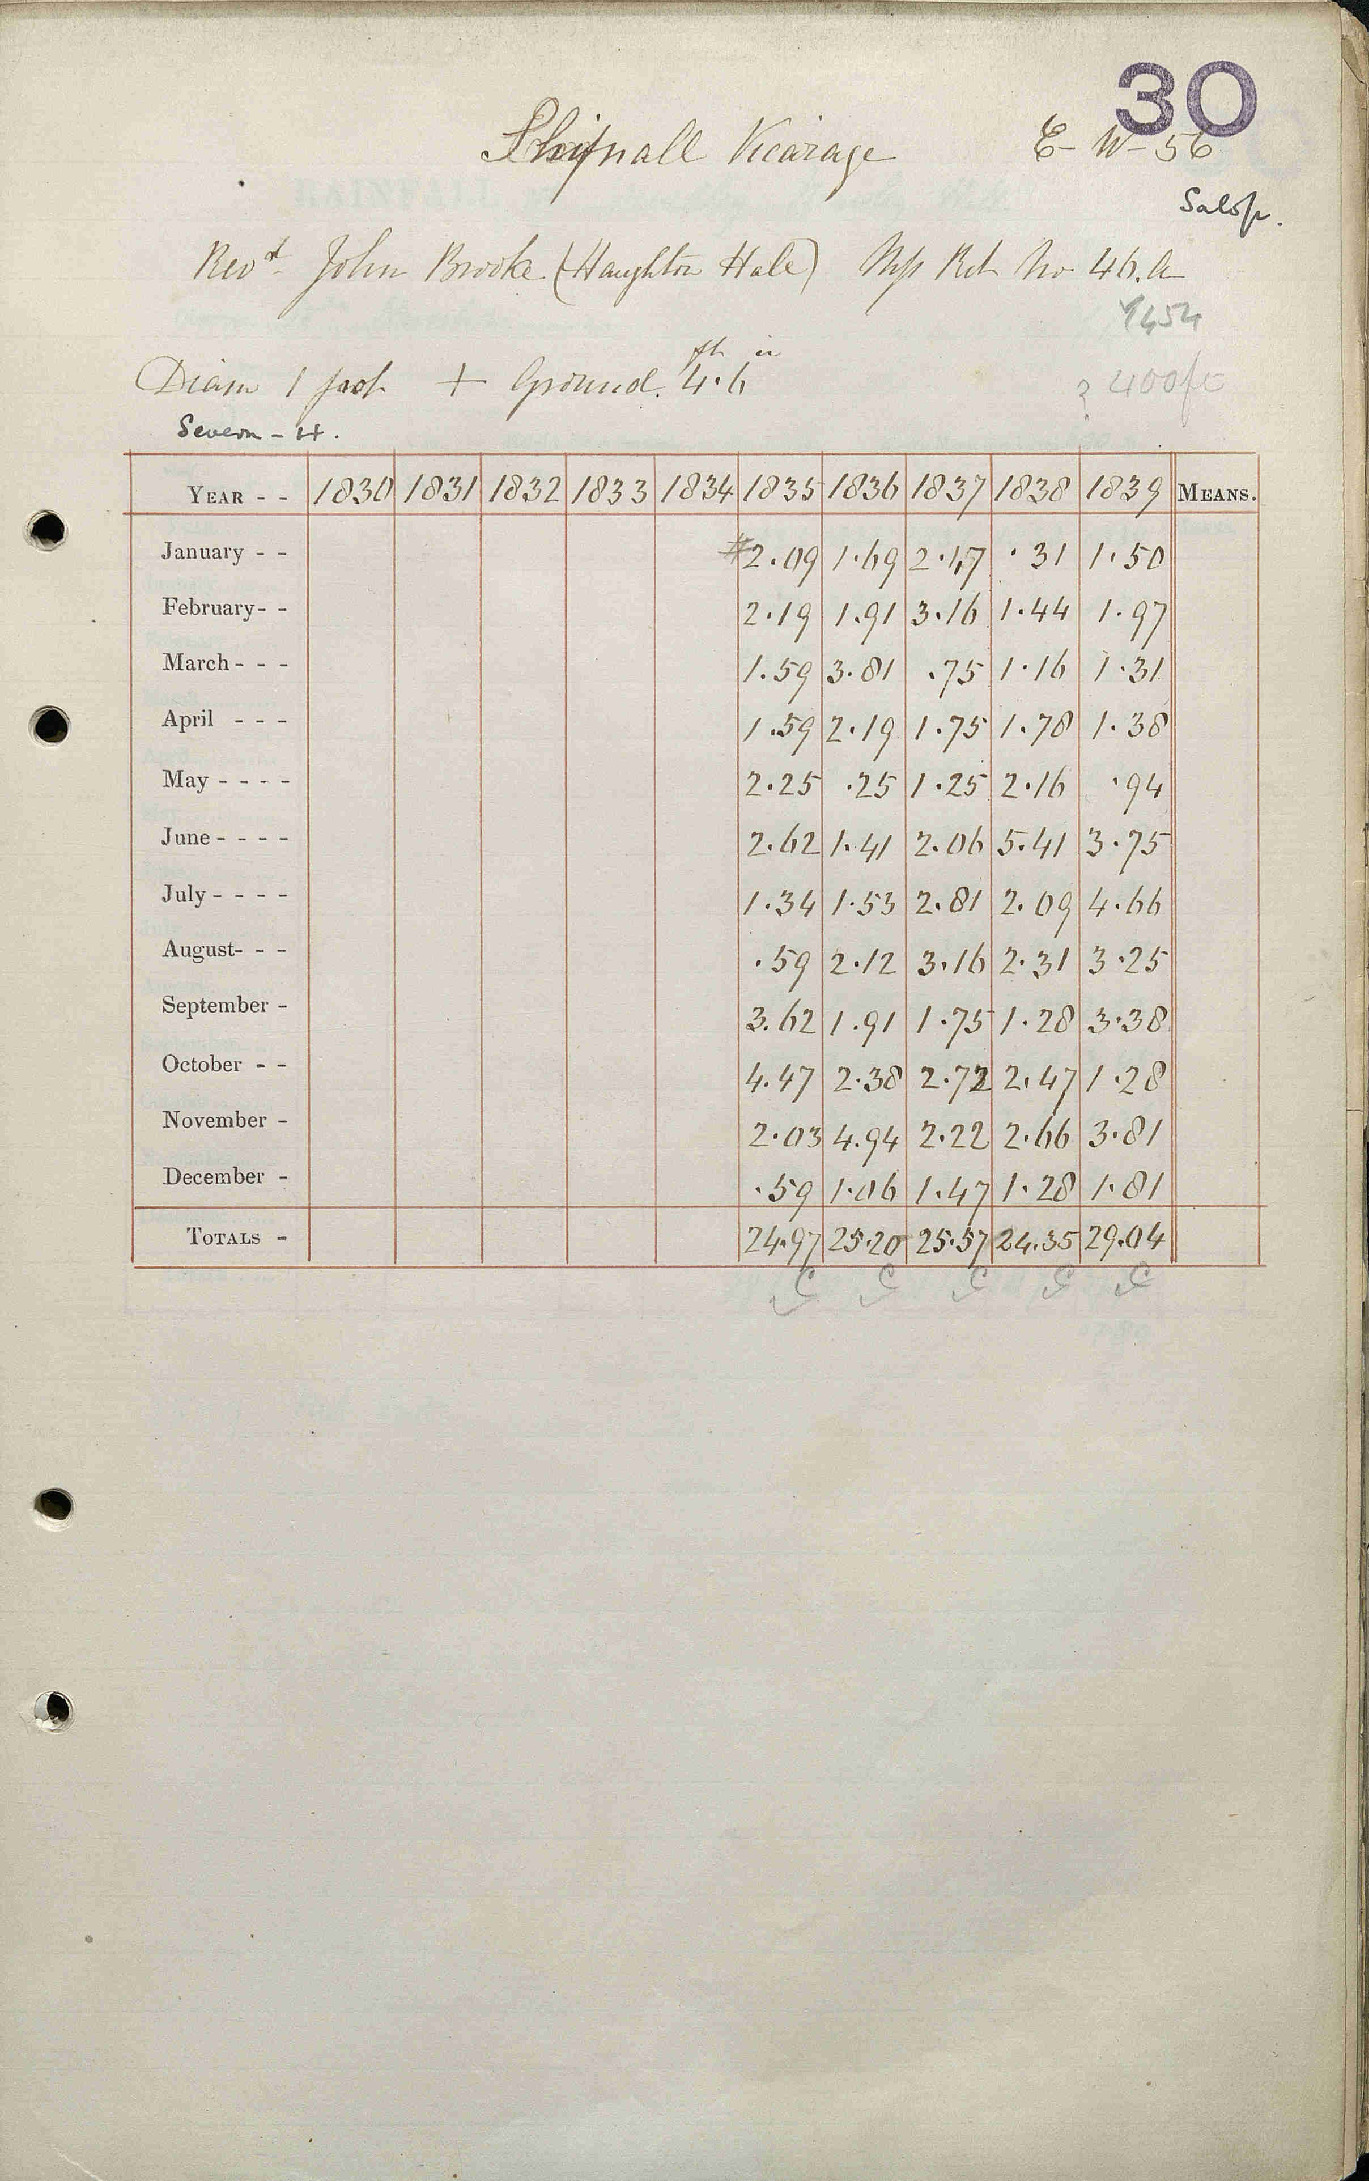 30
Shifnall Vicarage E-W-56
Salop.
Revd. John Brooke (Haughton Hale) Mss Ret No 46.A
454
Diam 1 foot + Ground. 4.6 ft in
? 400ft
Severn - H.
YEAR - - 1830 1831 1832 1833 1834 1835 1836 1837 1838 1839 MEANS.
January - - 2.09 1.69 2.47 .31 1.50
February - - 2.19 1.91 3.16 1.44 1.97
March - - - 1.59 3.81 .75 1.16 1.31
April - - - 1.59 2.19 1.75 1.78 1.38
May - - - - 2.25 .25 1.25 2.16 .94
June - - - - 2.62 1.41 2.06 5.41 3.75
July - - - - 1.34 1.53 2.81 2.09 4.66
August - - - .59 2.12 3.16 2.31 3.25
September - 3.62 1.91 1.75 1.28 3.38
October - - 4.47 2.38 2.72 2.47 1.28
November - 2.03 4.94 2.22 2.66 3.81
December - .59 1.06 1.47 1.28 1.81
TOTALS - 24.97 25.20 25.57 24.35 29.04